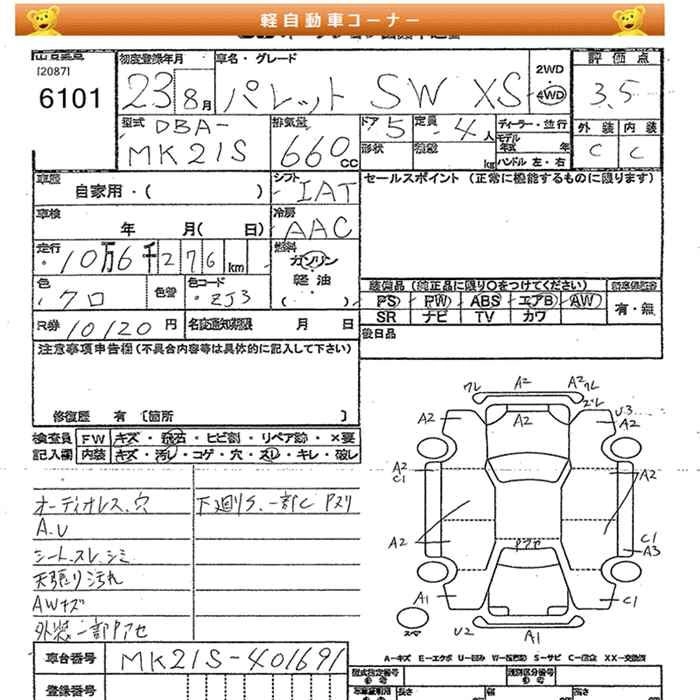 軽自動車コーナー
[2087]
6101
初度登録年月
23 8月
車名・グレード
パレット SW XS
2WD
4WD
評価点
3.5
型式
DBA-
MK21S
排気量
660 cc
ドア 5
定員 4 人
形状
積載 kg
ディーラー・並行
モデル
年式 年
ハンドル 左・右
外装 内装
C C
車歴
自家用・( )
シフト
IAT
セールスポイント (正常に機能するものに限ります)
車検
年 月( 日)
冷房
AAC
走行
10万6千276km
燃料
ガソリン
軽油
( )
色
クロ
色替
色コード
ZJ3
装備品 (純正品に限り○をつけてください)
PS PW ABS エアB AW
SR ナビ TV カワ
有・無
R券 10120 円
名変通知期限 月 日
後日品
注意事項申告欄 (不具合内容等は具体的に記入して下さい)
修復歴 有 [箇所 ]
検査員
記入欄
FW キズ・飛石・ヒビ割・リペア跡・×要
内装 キズ・汚レ・コゲ・穴・スレ・キレ・破レ
オーディオレス、穴
下廻りS、一部C Pヌリ
A.U
シートスレ、シミ
天張り汚れ
AWキズ
外装一部Pアセ
ワレ A2 A2 ワレ
ズレ
A2 A2 U3
A2
A2
C1
A2
A2
Pアセ
C1
A3
A1
C1
スペ
U2
A1
車台番号
MK21S-401691
A-キズ E-エクボ U-凹み W-板金跡 S-サビ C-腐食 XX-交換済
登録番号
型式指定番号
類別区分番号
長さ
幅
高さ